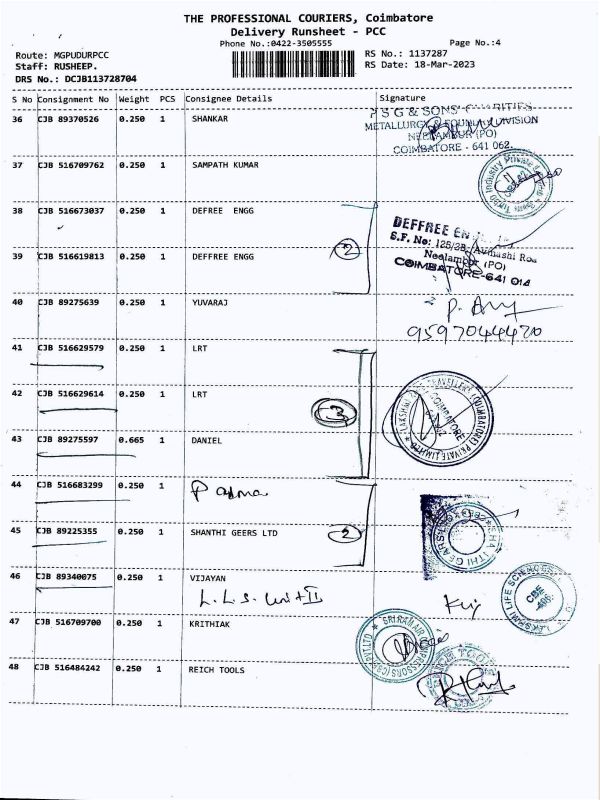 THE PROFESSIONAL COURIERS, Coimbatore
Delivery Runsheet - PCC
Phone No.:0422-3505555
Page No.:4
Route: MGPUDURPCC
Staff: RUSHEEP.
DRS No.: DCJB113728704
RS No.: 1137287
RS Date: 18-Mar-2023
S No Consignment No Weight PCS Consignee Details Signature
36 CJB 89370526 0.250 1 SHANKAR
P S G & SONS' CHARITIES
METALLURGY & FOUNDRY DIVISION
NEELAMBUR (PO)
COIMBATORE - 641 062.
37 CJB 516709762 0.250 1 SAMPATH KUMAR
38 CJB 516673037 0.250 1 DEFREE ENGG
39 CJB 516619813 0.250 1 DEFFREE ENGG
2
DEFFREE
S.F. No: 125/2B, Avinashi Roa
Neelambur (PO)
COIMBATORE-641 014
40 CJB 89275639 0.250 1 YUVARAJ
9597044420
41 CJB 516629579 0.250 1 LRT
42 CJB 516629614 0.250 1 LRT
3
43 CJB 89275597 0.665 1 DANIEL
44 CJB 516683299 0.250 1
45 CJB 89225355 0.250 1 SHANTHI GEERS LTD
2
46 CJB 89340075 0.250 1 VIJAYAN
L.L.S. Unit II
LAKSHMI LIFE SCIENCES
CBE
47 CJB 516709700 0.250 1 KRITHIAK
48 CJB 516484242 0.250 1 REICH TOOLS